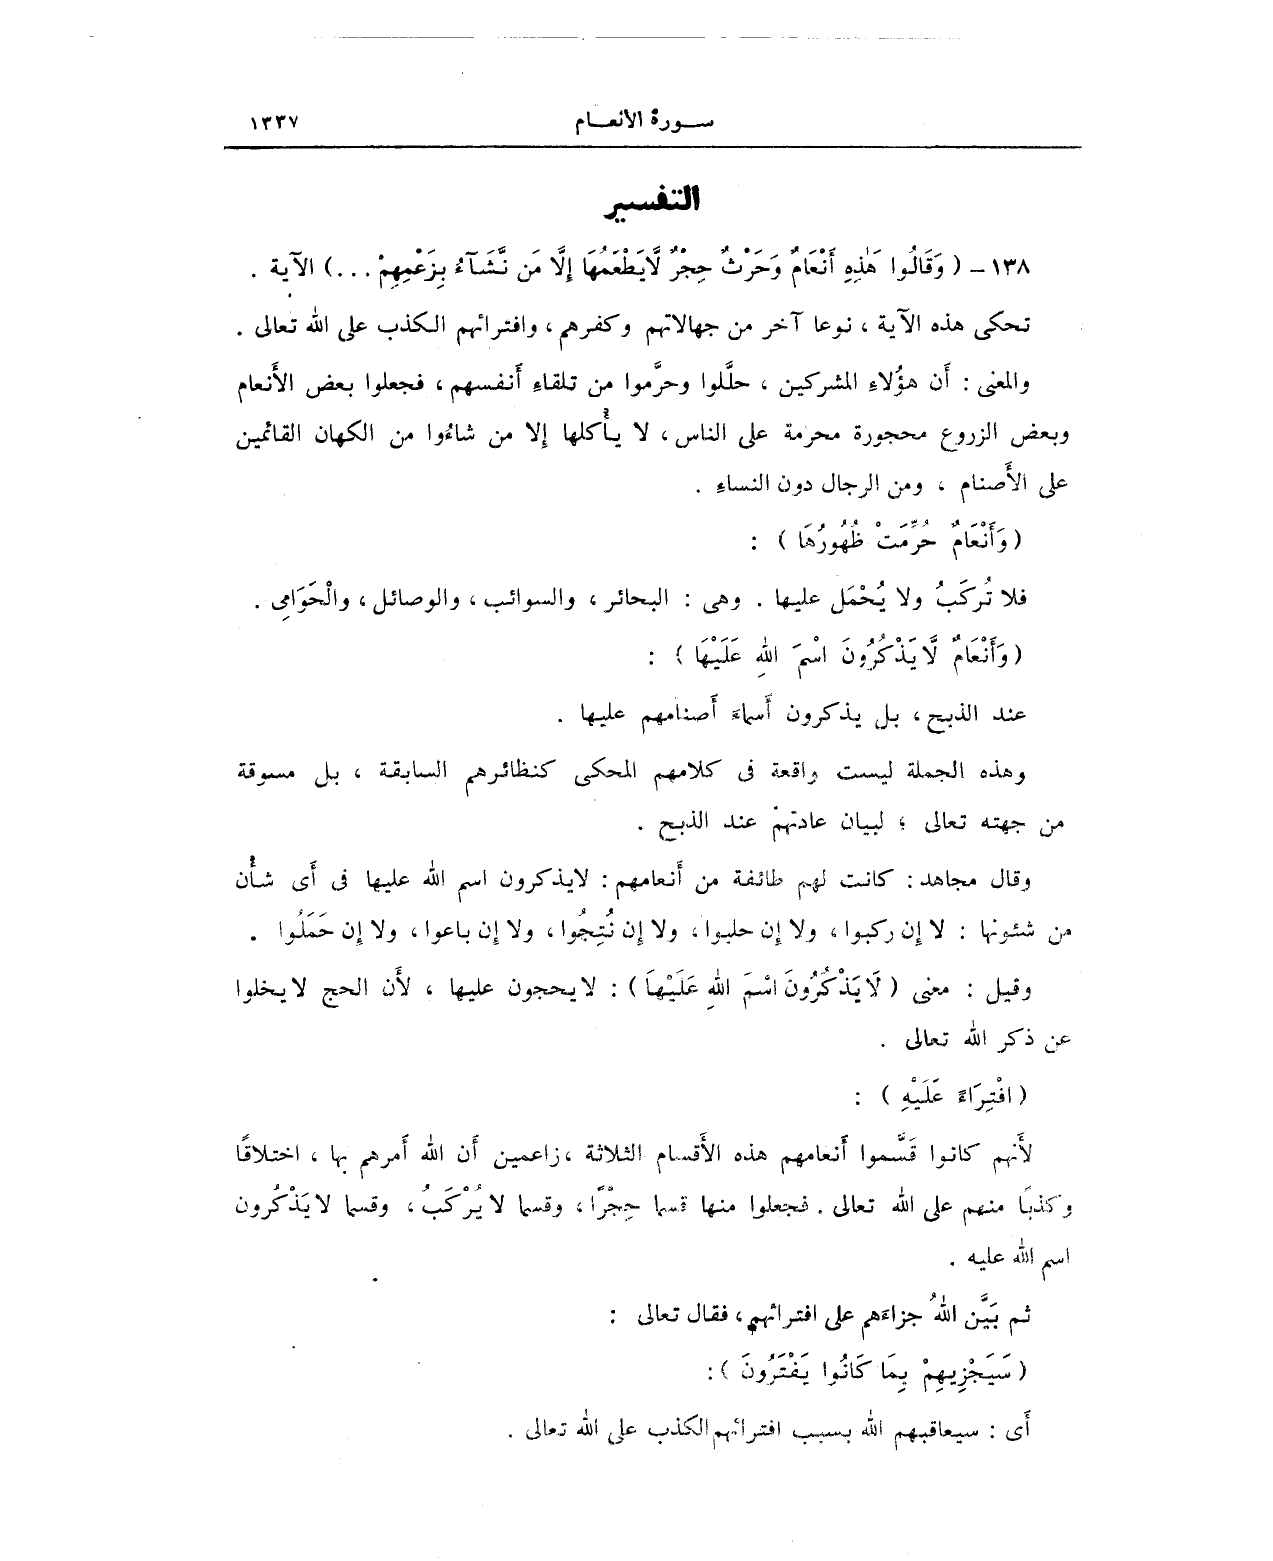 ســورة الأنعــام ١٣٣٧
التفسير
١٣٨ – ( وَقَالُوا هَٰذِهِ أَنْعَامٌ وَحَرْثٌ حِجْرٌ لَّايَطْعَمُهَا إِلَّا مَن نَّشَآءُ بِزَعْمِهِمْ ... ) الآية .
تحكى هذه الآية ، نوعا آخر من جهالاتهم وكفرهم ، وافترائهم الكذب على الله تعالى .
والمعنى : أَن هؤُلاءِ المشركين ، حلَّلوا وحرَّموا من تلقاءِ أَنفسهم ، فجعلوا بعض الأَنعام
وبعض الزروع محجورة محرمة على الناس ، لا يأْكلها إلا من شاءُوا من الكهان القائمين
على الأَصنام ، ومن الرجال دون النساءِ .
( وَأَنْعَامٌ حُرِّمَتْ ظُهُورُهَا ) :
فلا تُركَبُ ولا يُحْمَل عليها . وهى : البحائر ، والسوائب ، والوصائل ، والْحَوَامِى .
( وَأَنْعَامٌ لَّا يَذْكُرُونَ اسْمَ اللهِ عَلَيْهَا ) :
عند الذبح ، بل يذكرون أَسماءَ أَصنامهم عليها .
وهذه الجملة ليست واقعة فى كلامهم المحكى كنظائرهم السابقة ، بل مسوقة
من جهته تعالى ؛ لبيان عادتهمْ عند الذبح .
وقال مجاهد : كانت لهم طائفة من أَنعامهم : لايذكرون اسم الله عليها فى أَى شأْن
من شئونها : لا إن ركبوا ، ولا إن حلبوا ، ولا إن نُتِجُوا ، ولا إن باعوا ، ولا إن حَمَلُوا .
وقيل : معنى ( لَا يَذْكُرُونَ اسْمَ اللهِ عَلَيْهَا ) : لايحجون عليها ، لأَن الحج لايخلوا
عن ذكر الله تعالى .
( افْتِرَاءً عَلَيْهِ ) :
لأَنهم كانوا قَسَّموا أَنعامهم هذه الأَقسام الثلاثة ، زاعمين أَن الله أَمرهم بها ، اختلاقًا
وكذبًا منهم على الله تعالى . فجعلوا منها قسما حِجْرًا ، وقسما لا يُرْكَبُ ، وقسما لايَذْكُرون
اسم الله عليه .
ثم بَيَّن اللهُ جزاءَهم على افترائهم ، فقال تعالى :
( سَيَجْزِيهِمْ بِمَا كَانُوا يَفْتَرُونَ ) :
أَى : سيعاقبهم الله بسبب افترائهم الكذب على الله تعالى .